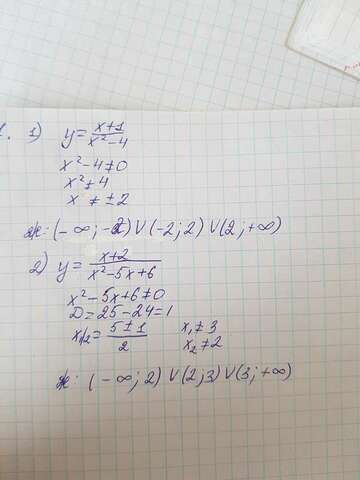 1. 1) y = x+1 / x² - 4
x² - 4 ≠ 0
x² ≠ 4
x ≠ ± 2
ж: (-∞; -2) ∪ (-2; 2) ∪ (2; +∞)
2) y = x+2 / x² - 5x + 6
x² - 5x + 6 ≠ 0
D = 25 - 24 = 1
x1/2 = 5 ± 1 / 2 x₁ ≠ 3
x₂ ≠ 2
ж: (-∞; 2) ∪ (2; 3) ∪ (3; +∞)